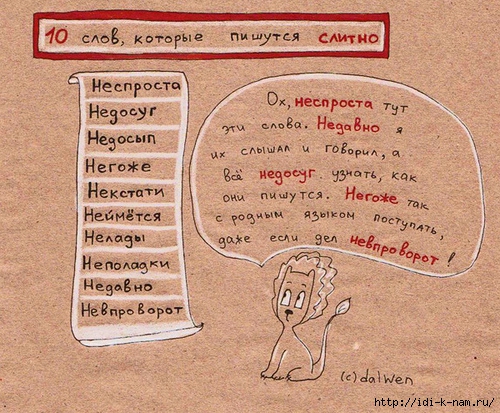 10 слов, которые пишутся слитно
Неспроста
Недосуг
Недосып
Негоже
Некстати
Неймётся
Нелады
Неполадки
Недавно
Невпроворот
Ох, неспроста тут
эти слова. Недавно я
их слышал и говорил, а
всё недосуг узнать, как
они пишутся. Негоже так
с родным языком поступать,
даже если дел невпроворот!
(c) dalwen
http://idi-k-nam.ru/